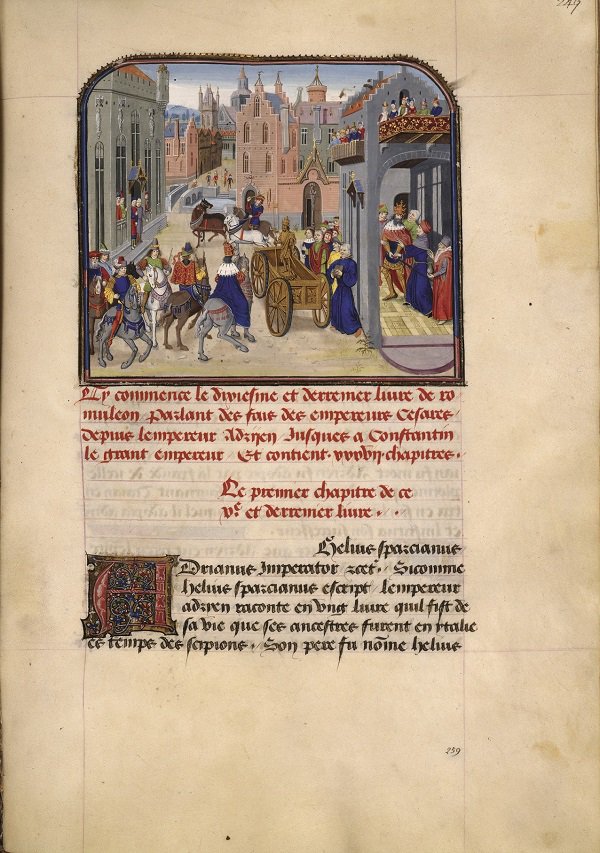 249
Cy commence le dixiesme et derremer livre de ro
muleon Parlant des fais des empereurs Cesares
depuis lempereur Adrien Jusques a Constantin
le grant empereur . Et contient . xxxvii . chapitres .
Le premier chapitre de ce
xe. et derremer livre . .
Helius sparcianus
Adrianus Imperator zcet . Sicomme
helius sparcianus escript / lempereur
adryen raconte en ung livre quil fist de
sa vie que ses ancestres furent en ytalie
ces temps des scipions . Son pere fu nōme helius
259